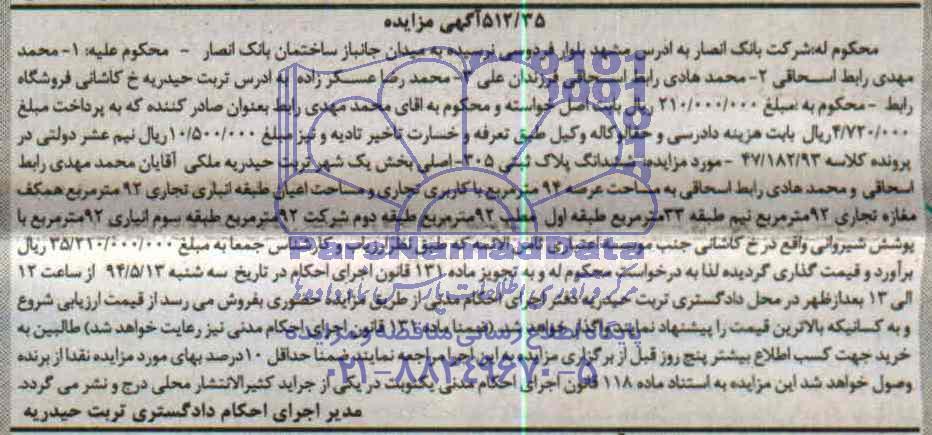 ۵۱۲/۳۵آگهی مزایده
محکوم له:شرکت بانک انصار به ادرس مشهد بلوار فردوسی نرسیده به میدان جانباز ساختمان بانک انصار - محکوم علیه: ۱- محمد
مهدی رابط اسحاقی ۲- محمد هادی رابط اسحاقی فرزندان علی ۳- محمد رضا عسکر زاده به ادرس تربت حیدریه خ کاشانی فروشگاه
رابط - محکوم به :مبلغ ۲۱۰/۰۰۰/۰۰۰ ریال بابت اصل خواسته و محکوم به اقای محمد مهدی رابط بعنوان صادر کننده که به پرداخت مبلغ
۴/۷۲۰/۰۰۰ریال بابت هزینه دادرسی و حقالوکاله وکیل طبق تعرفه و خسارت تاخیر تادیه و نیز مبلغ ۱۰/۵۰۰/۰۰۰ریال نیم عشر دولتی در
پرونده کلاسه ۴۷/۱۸۲/۹۳ -مورد مزایده: ششدانگ پلاک ثبتی ۳۰۵- اصلی بخش یک شهر تربت حیدریه ملکی آقایان محمد مهدی رابط
اسحاقی و محمد هادی رابط اسحاقی به مساحت عرصه ۹۴ مترمربع با کاربری تجاری و مساحت اعیان طبقه انباری تجاری ۹۲ مترمربع همکف
مغازه تجاری ۹۲مترمربع نیم طبقه ۳۳مترمربع طبقه اول مطب ۹۲مترمربع طبقه دوم شرکت ۹۲مترمربع طبقه سوم انباری ۹۲مترمربع با
پوشش شیروانی واقع در خ کاشانی جنب موسسه اعتباری ثامن الائمه که طبق نظر ارزیاب و کارشناس جمعا به مبلغ ۳۵/۲۱۰/۰۰۰/۰۰۰ ریال
برآورد و قیمت گذاری گردیده لذا به درخواست محکوم له و به تجویز ماده ۱۳۱ قانون اجرای احکام در تاریخ سه شنبه ۹۴/۵/۱۳ از ساعت ۱۲
الی ۱۳ بعدازظهر در محل دادگستری تربت حیدریه دفتر اجرای احکام مدنی از طریق مزایده حضوری بفروش می رسد از قیمت ارزیابی شروع
و به کسانیکه بالاترین قیمت را پیشنهاد نمایند واگذار خواهد شد. (ضمنا ماده ۱۳۱ قانون اجرای احکام مدنی نیز رعایت خواهد شد) طالبین به
خرید جهت کسب اطلاع بیشتر پنج روز قبل از برگزاری مزایده به این اجرا مراجعه نمایند ضمنا حداقل ۱۰درصد بهای مورد مزایده نقدا از برنده
وصول خواهد شد این مزایده به استناد ماده ۱۱۸ قانون اجرای احکام مدنی یکنوبت در یکی از جراید کثیرالانتشار محلی درج و نشر می گردد.
مدیر اجرای احکام دادگستری تربت حیدریه
ParsNamadData
پایگاه اطلاع رسانی مناقصه و مزایده
۰۲۱-۸۸۳۴۹۶۷۰-۵